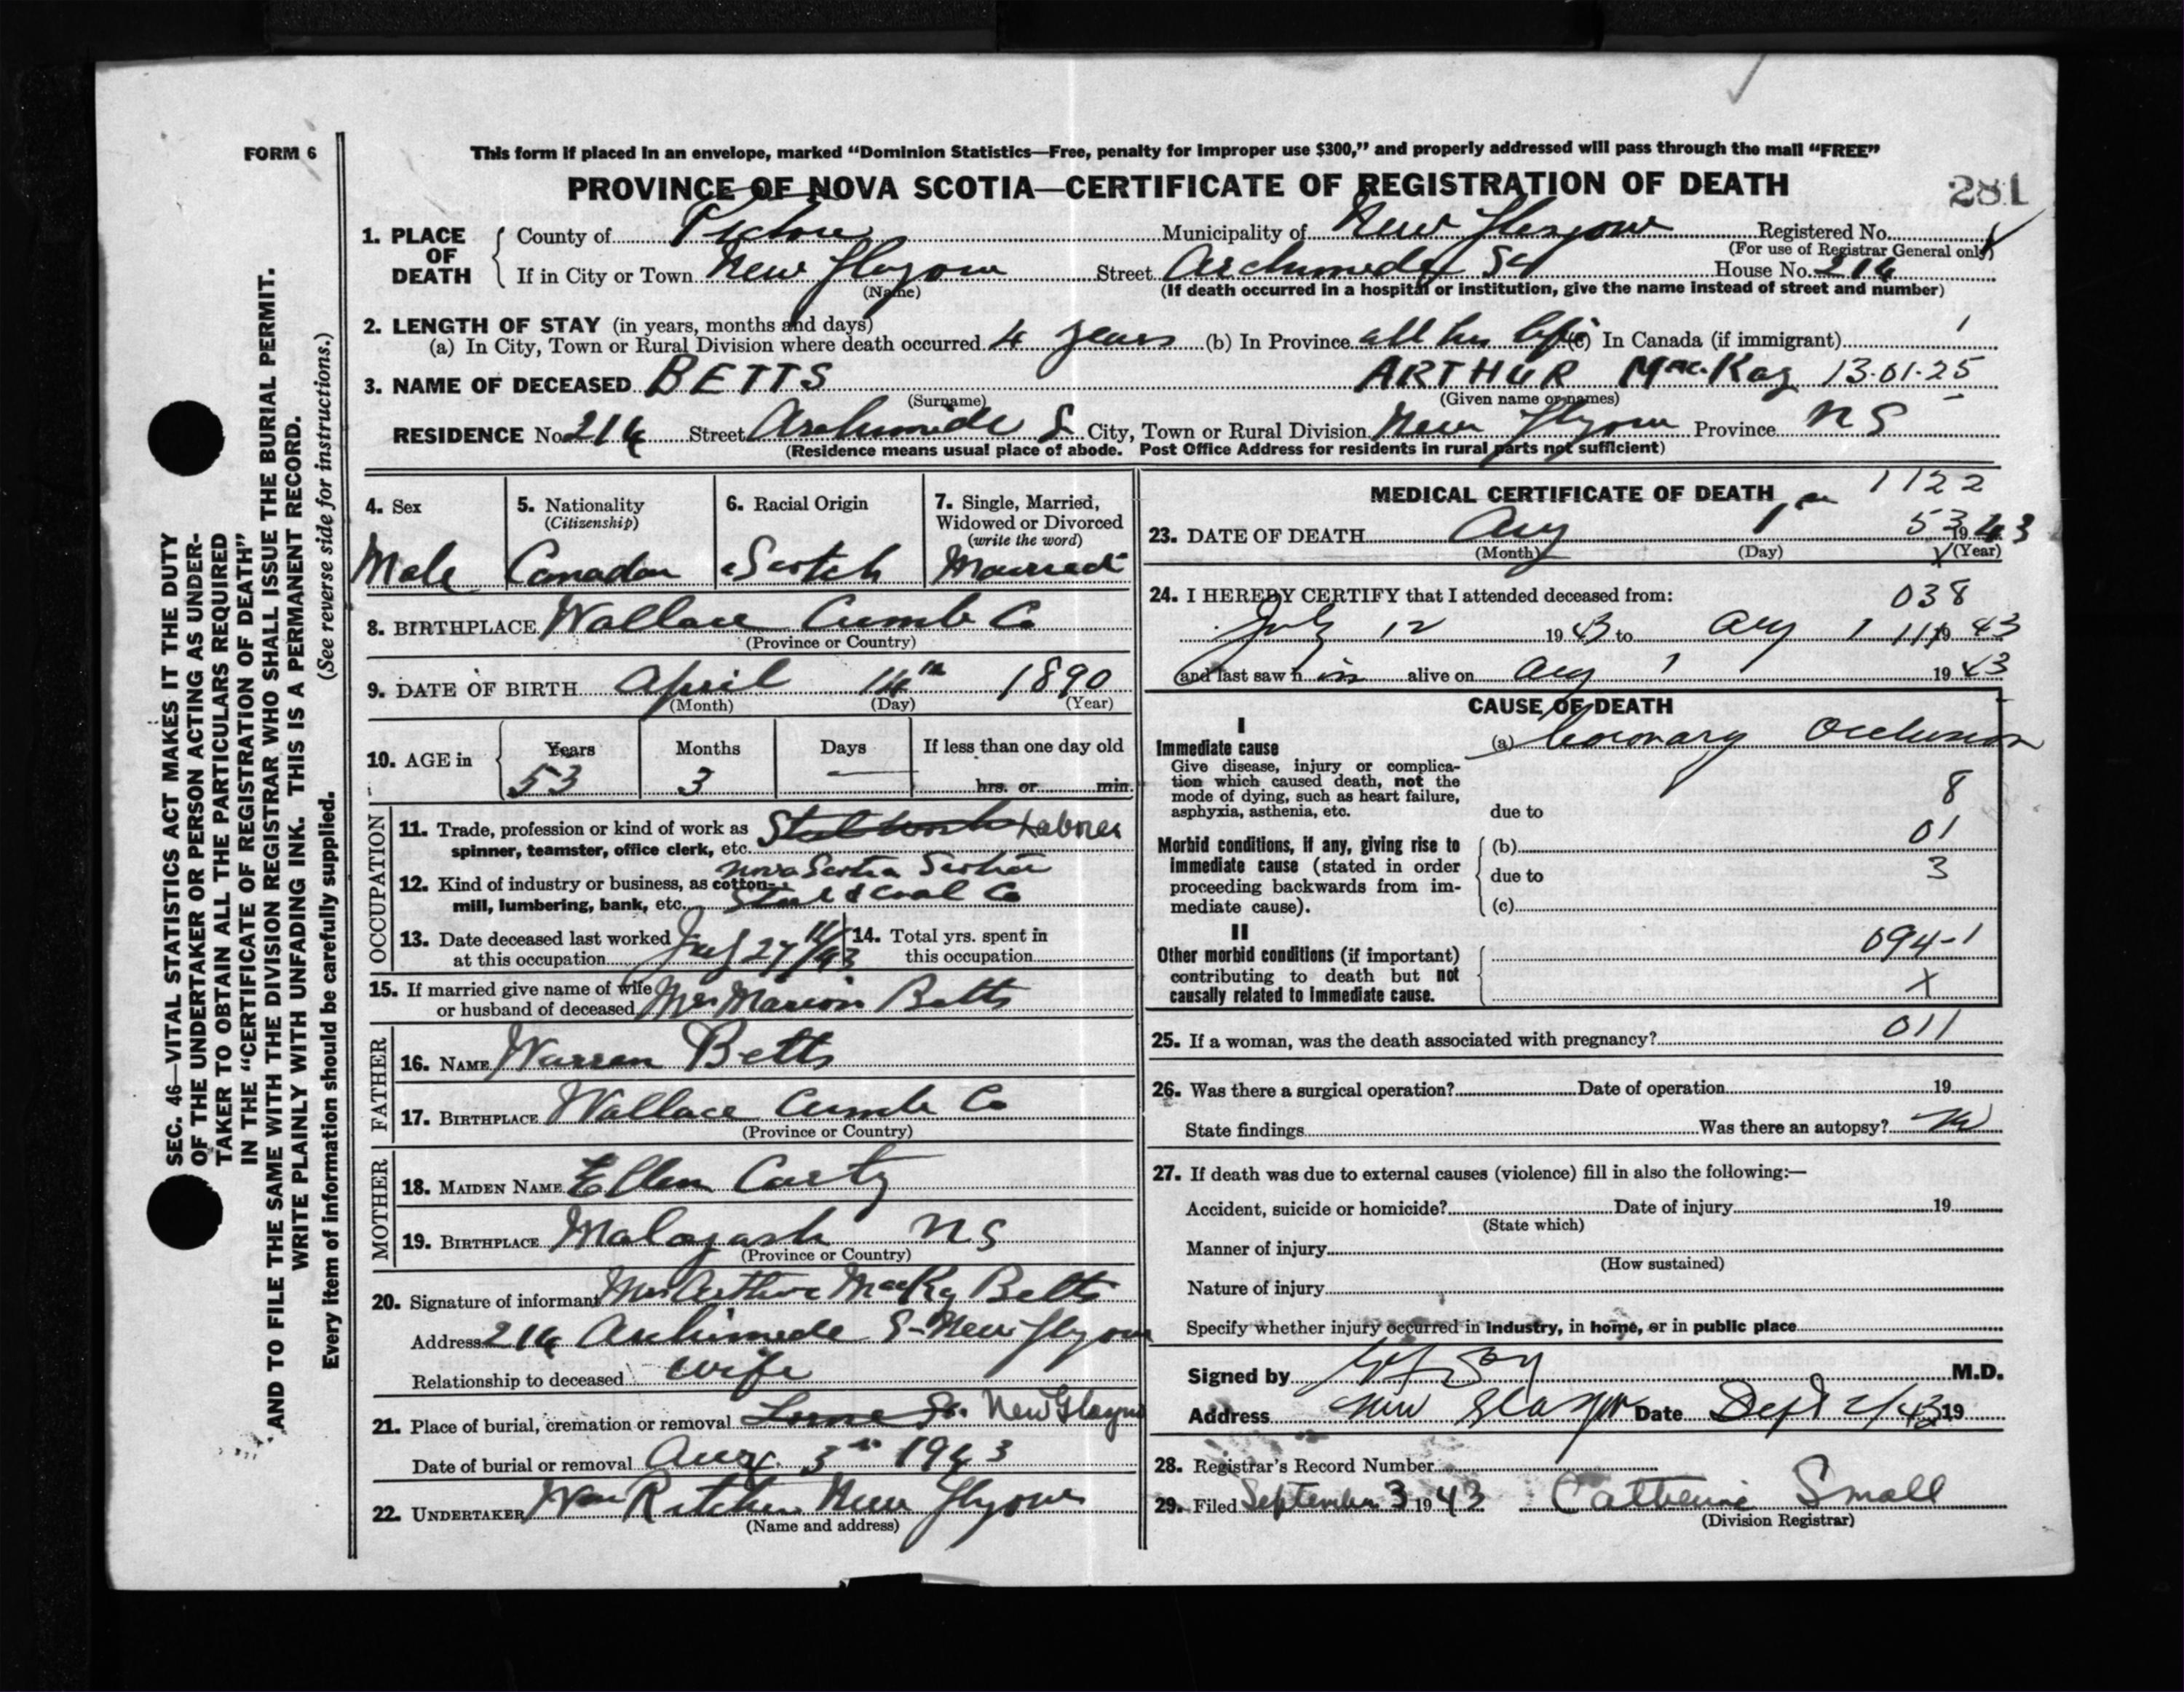 FORM 6
This form if placed in an envelope, marked "Dominion Statistics—Free, penalty for improper use $300," and properly addressed will pass through the mail "FREE"
PROVINCE OF NOVA SCOTIA—CERTIFICATE OF REGISTRATION OF DEATH
281
1. PLACE OF DEATH
County of Pictou Municipality of New Glasgow Registered No.
(For use of Registrar General only)
If in City or Town New Glasgow Street Archimedes St House No. 214
(Name) (If death occurred in a hospital or institution, give the name instead of street and number)
2. LENGTH OF STAY (in years, months and days)
(a) In City, Town or Rural Division where death occurred 4 years (b) In Province all his life (c) In Canada (if immigrant)
3. NAME OF DECEASED BETTS ARTHUR MacKay 13-01-25
(Surname) (Given name or names)
RESIDENCE No. 214 Street Archimede S City, Town or Rural Division New Glasgow Province N S
(Residence means usual place of abode. Post Office Address for residents in rural parts not sufficient)
4. Sex Male
5. Nationality (Citizenship) Canadian
6. Racial Origin Scotch
7. Single, Married, Widowed or Divorced (write the word) Married
8. BIRTHPLACE Wallace Cumb Co
(Province or Country)
9. DATE OF BIRTH April 14th 1890
(Month) (Day) (Year)
10. AGE in Years 53 Months 3 Days — If less than one day old hrs. or min.
OCCUPATION
11. Trade, profession or kind of work as spinner, teamster, office clerk, etc. Laborer
12. Kind of industry or business, as cotton-mill, lumbering, bank, etc. Nova Scotia Steel & Coal Co
13. Date deceased last worked at this occupation 27
14. Total yrs. spent in this occupation
15. If married give name of wife or husband of deceased Mrs Marion Betts
FATHER
16. NAME Warren Betts
17. BIRTHPLACE Wallace Cumb Co
(Province or Country)
MOTHER
18. MAIDEN NAME Ellen Carty
19. BIRTHPLACE Malagash N S
(Province or Country)
20. Signature of informant Mrs Arthur MacKy Betts
Address 214 Archimede S- New Glasgow
Relationship to deceased wife
21. Place of burial, cremation or removal New Glasgow
Date of burial or removal Aug. 3rd 1943
22. UNDERTAKER Wm Ritchie New Glasgow
(Name and address)
MEDICAL CERTIFICATE OF DEATH
1122
23. DATE OF DEATH Aug 1 53 1943
(Month) (Day) (Year)
24. I HEREBY CERTIFY that I attended deceased from: 038
July 12 1943 to Aug 1 1943
and last saw h im alive on Aug 1 1943
CAUSE OF DEATH
I
Immediate cause (a) Coronary Occlusion
Give disease, injury or complica-
tion which caused death, not the
mode of dying, such as heart failure, 8
asphyxia, asthenia, etc. due to
01
Morbid conditions, if any, giving rise to (b)
immediate cause (stated in order due to 3
proceeding backwards from im-
mediate cause). (c)
II
Other morbid conditions (if important) 094-1
contributing to death but not X
causally related to immediate cause.
25. If a woman, was the death associated with pregnancy? 011
26. Was there a surgical operation? Date of operation 19
State findings Was there an autopsy? no
27. If death was due to external causes (violence) fill in also the following:—
Accident, suicide or homicide? Date of injury 19
(State which)
Manner of injury
(How sustained)
Nature of injury
Specify whether injury occurred in industry, in home, or in public place
Signed by M.D.
Address New Glasgow Date Sept 2/43 19
28. Registrar's Record Number
29. Filed September 3 1943 Catherine Small
(Division Registrar)
SEC. 46—VITAL STATISTICS ACT MAKES IT THE DUTY
OF THE UNDERTAKER OR PERSON ACTING AS UNDER-
TAKER TO OBTAIN ALL THE PARTICULARS REQUIRED
IN THE "CERTIFICATE OF REGISTRATION OF DEATH"
AND TO FILE THE SAME WITH THE DIVISION REGISTRAR WHO SHALL ISSUE THE BURIAL PERMIT.
WRITE PLAINLY WITH UNFADING INK. THIS IS A PERMANENT RECORD.
Every item of information should be carefully supplied. (See reverse side for instructions.)